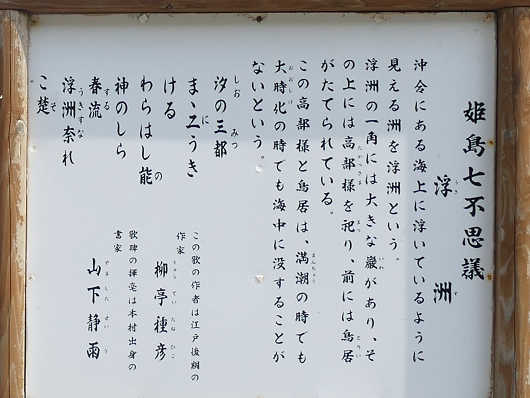 姫島七不思議
浮洲
沖合にある海上に浮いているように
見える洲を浮洲という。
浮洲の一角には大きな巌があり、そ
の上には高部様を祀り、前には鳥居
がたてられている。
この高部様と鳥居は、満潮の時でも
大時化の時でも海中に没することが
ないという。
汐の三都
まゝ二うき
ける
わらはし能
神のしら
春流
浮洲奈れ
こ楚
この歌の作者は江戸後期の
作家
柳亭種彦
歌碑の揮毫は本村出身の
書家
山下静雨